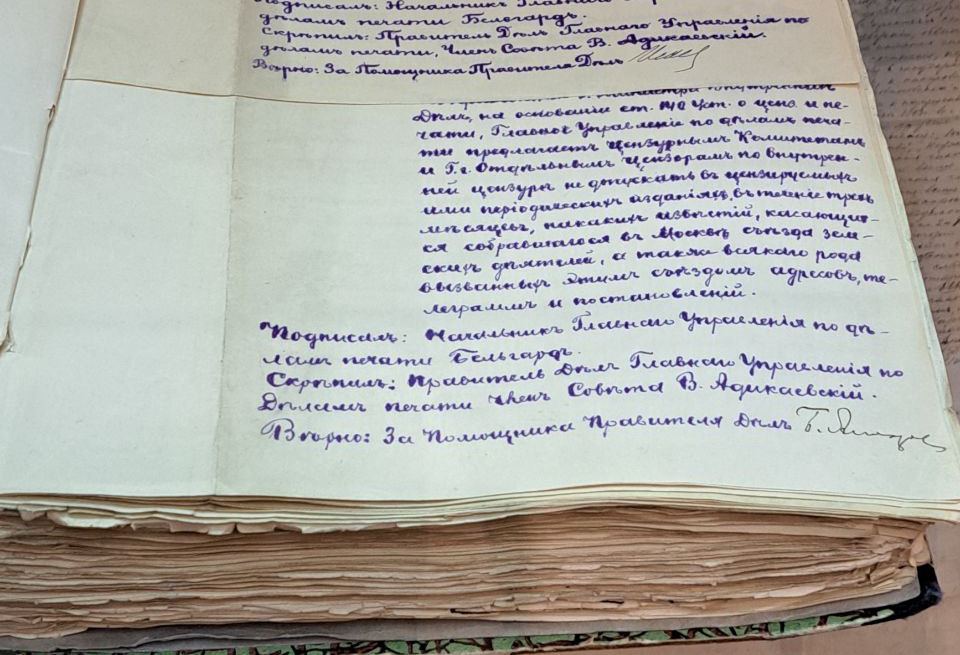 Подписалъ: Начальникъ Главнаго
дѣламъ печати Бельгардъ.
Скрѣпилъ: Правитель Дѣлъ Главнаго Управленія по
дѣламъ печати, Членъ Совѣта В. Адикаевскій.
Вѣрно: За Помощника Правителя Дѣлъ
Министра Внутреннихъ
Дѣлъ, на основаніи ст. 140 Уст. о ценз. и пе-
чати, Главное Управленіе по дѣламъ печа-
ти предлагаетъ Цензурнымъ Комитетамъ
и Г.г. Отдѣльнымъ Цензорамъ по внутрен-
ней цензурѣ не допускать въ цензируемыхъ
ими періодическихъ изданіяхъ, въ теченіе трехъ
мѣсяцевъ, никакихъ извѣстій, касающих-
ся собравшагося въ Москвѣ съѣзда зем-
скихъ дѣятелей, а также всякаго рода
вызванныхъ этимъ съѣздомъ адресовъ, те-
леграммъ и постановленій.
Подписалъ: Начальникъ Главнаго Управленія по дѣ-
ламъ печати Бельгардъ.
Скрѣпилъ: Правитель Дѣлъ Главнаго Управленія по
Дѣламъ печати Членъ Совѣта В. Адикаевскій.
Вѣрно: За Помощника Правителя Дѣлъ